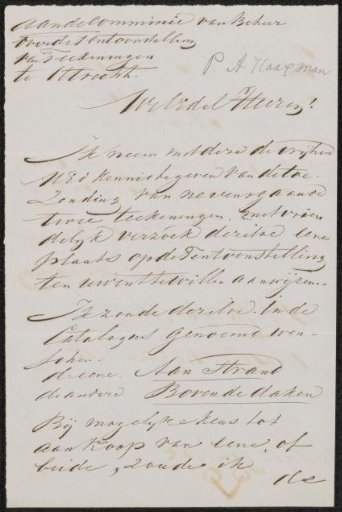 Aan de Commissie van Beheer
voor de Tentoonstelling
van Teekeningen
te Utrecht.
P. A. Haaxman
WelEdel Heeren!
Ik neem met deze de vrijheid
UEd kennis te geven van de toe-
zending van nevensgaande
twee teekeningen, met vrien
delyk verzoek dezelve eene
plaats op de Tentoonstelling
ten uwent te willen aanwijzen.
Ik zoude dezelve in de
Catalogus genoemd wen-
schen.
de eene. Aan Strand
de andere Boven de daken
Bij mogelyke keus tot
aankoop van eene, of
beide, zoude ik
de